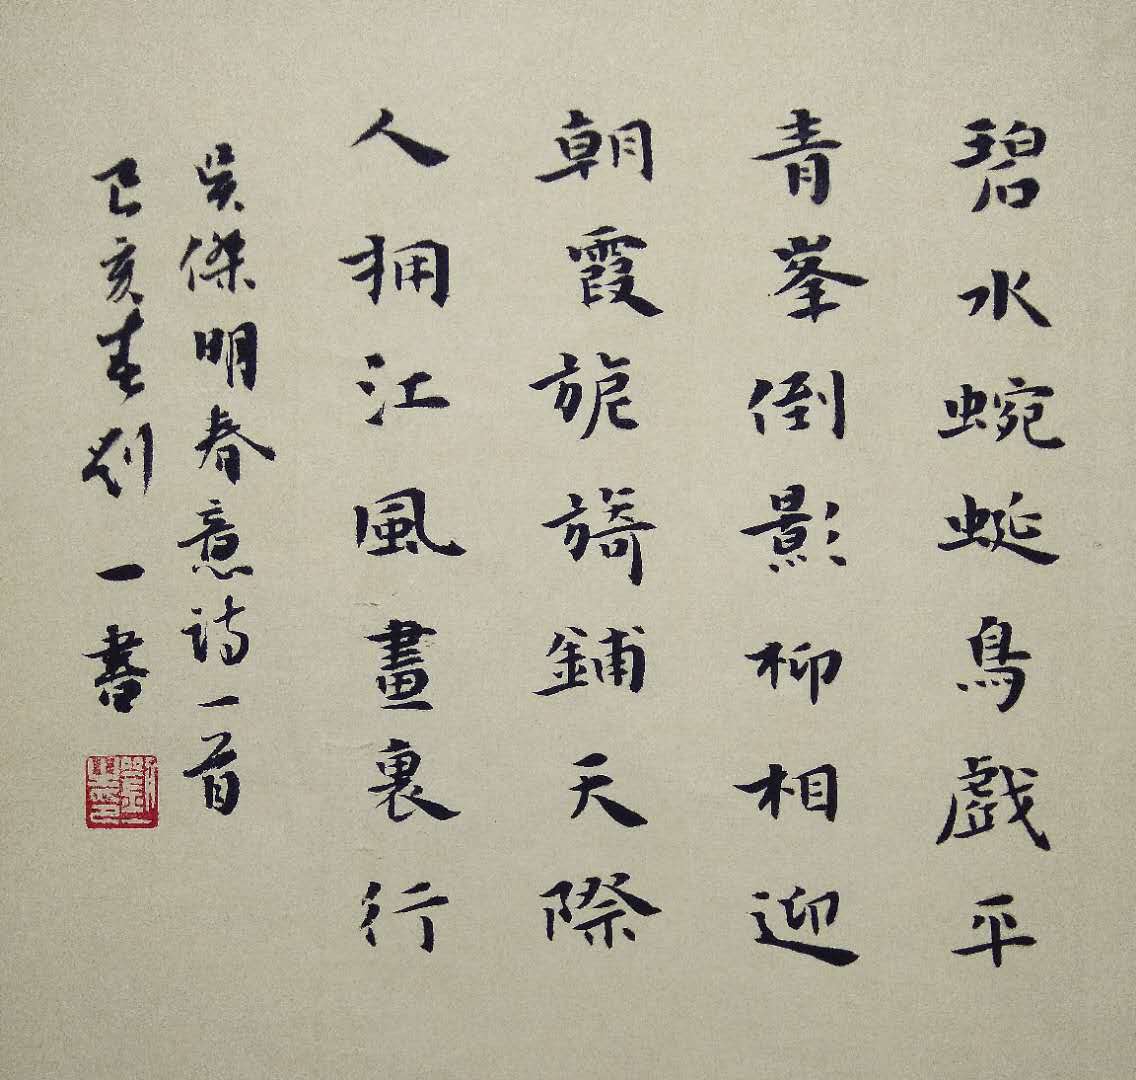 碧水蜿蜒鳥戲平
青峯倒影柳相迎
朝霞旎旖鋪天際
人拥江風畫裏行
吳傑明春意詩一首
己亥春刘一書
劉一之印